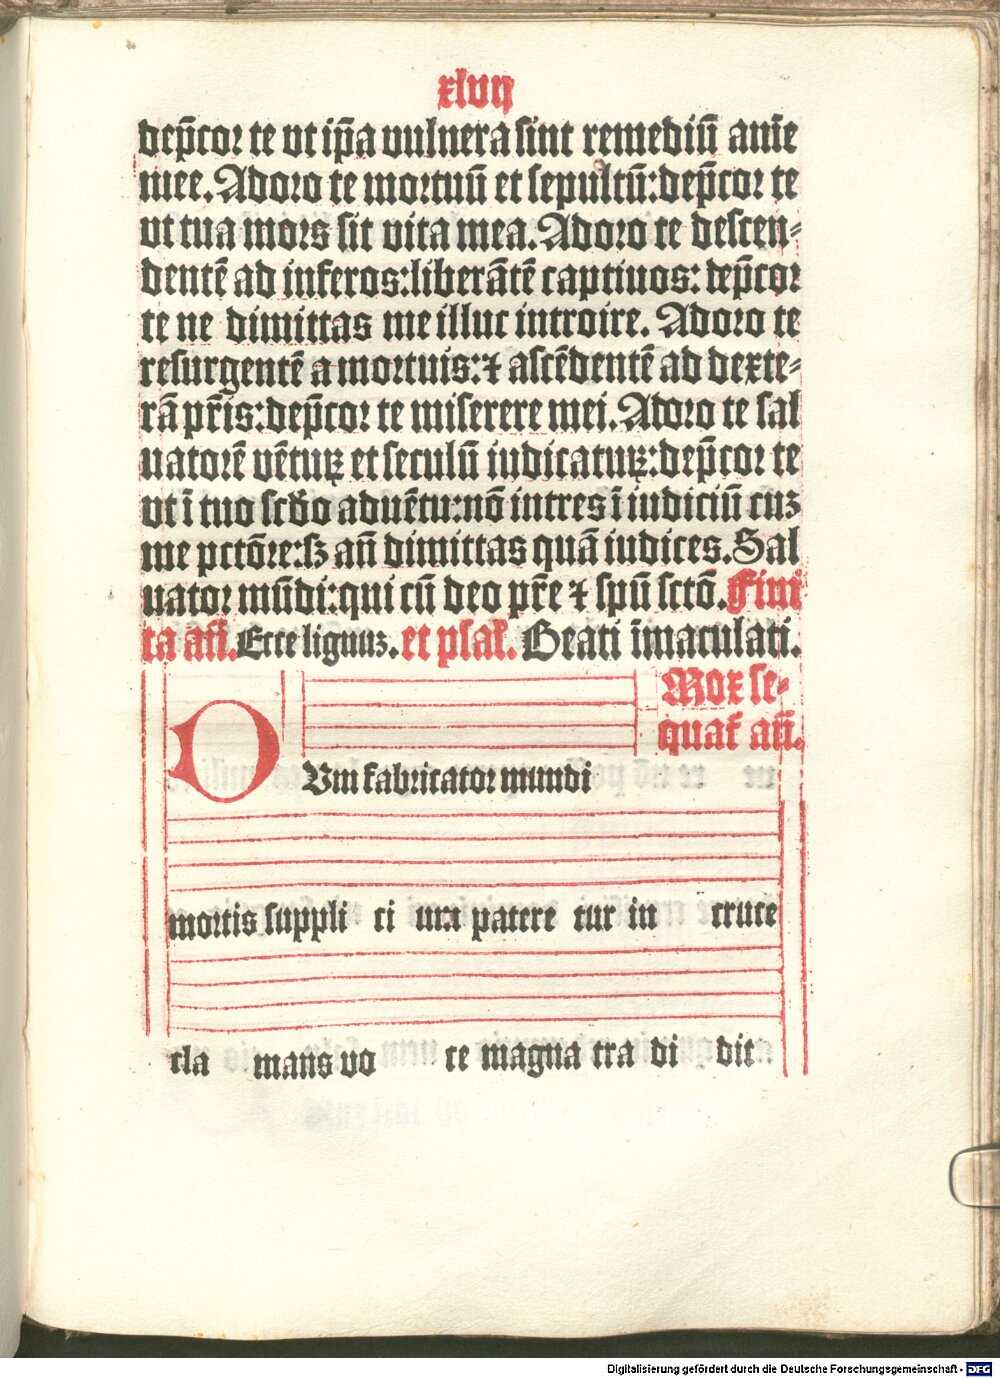 xlvij
dep̄cor te vt ip̄a vulnera sint remediū anīe
mee. Adoro te mortuū et sepultū: dep̄cor te
vt tua mors sit vita mea. Adoro te descen⸗
dentē ad inferos: liberātē captiuos: dep̄cor
te ne dimittas me illuc introire. Adoro te
resurgentē a mortuis: ⁊ ascēdentē ad dexte⸗
rā pr̄is: dep̄cor te miserere mei. Adoro te sal
uatorē vētuꝝ et seculū iudicatuꝝ: dep̄cor te
vt ī tuo sc̄do aduētu: nō intres ī iudiciū cuꝫ
me pctōre: sꝫ an̄ dimittas quā iudices. Sal
uator mūdi: qui cū deo pr̄e ⁊ spū sctō. Fini
ta an̄. Ecce lignuꝫ. et psal̄. Beati īmaculati.
Mox se⸗
quat̄ an̄.
D
Vm fabricator mundi
mortis suppli ci um patere tur in cruce
cla mans vo ce magna tra di dit
Digitalisierung gefördert durch die Deutsche Forschungsgemeinschaft - DFG